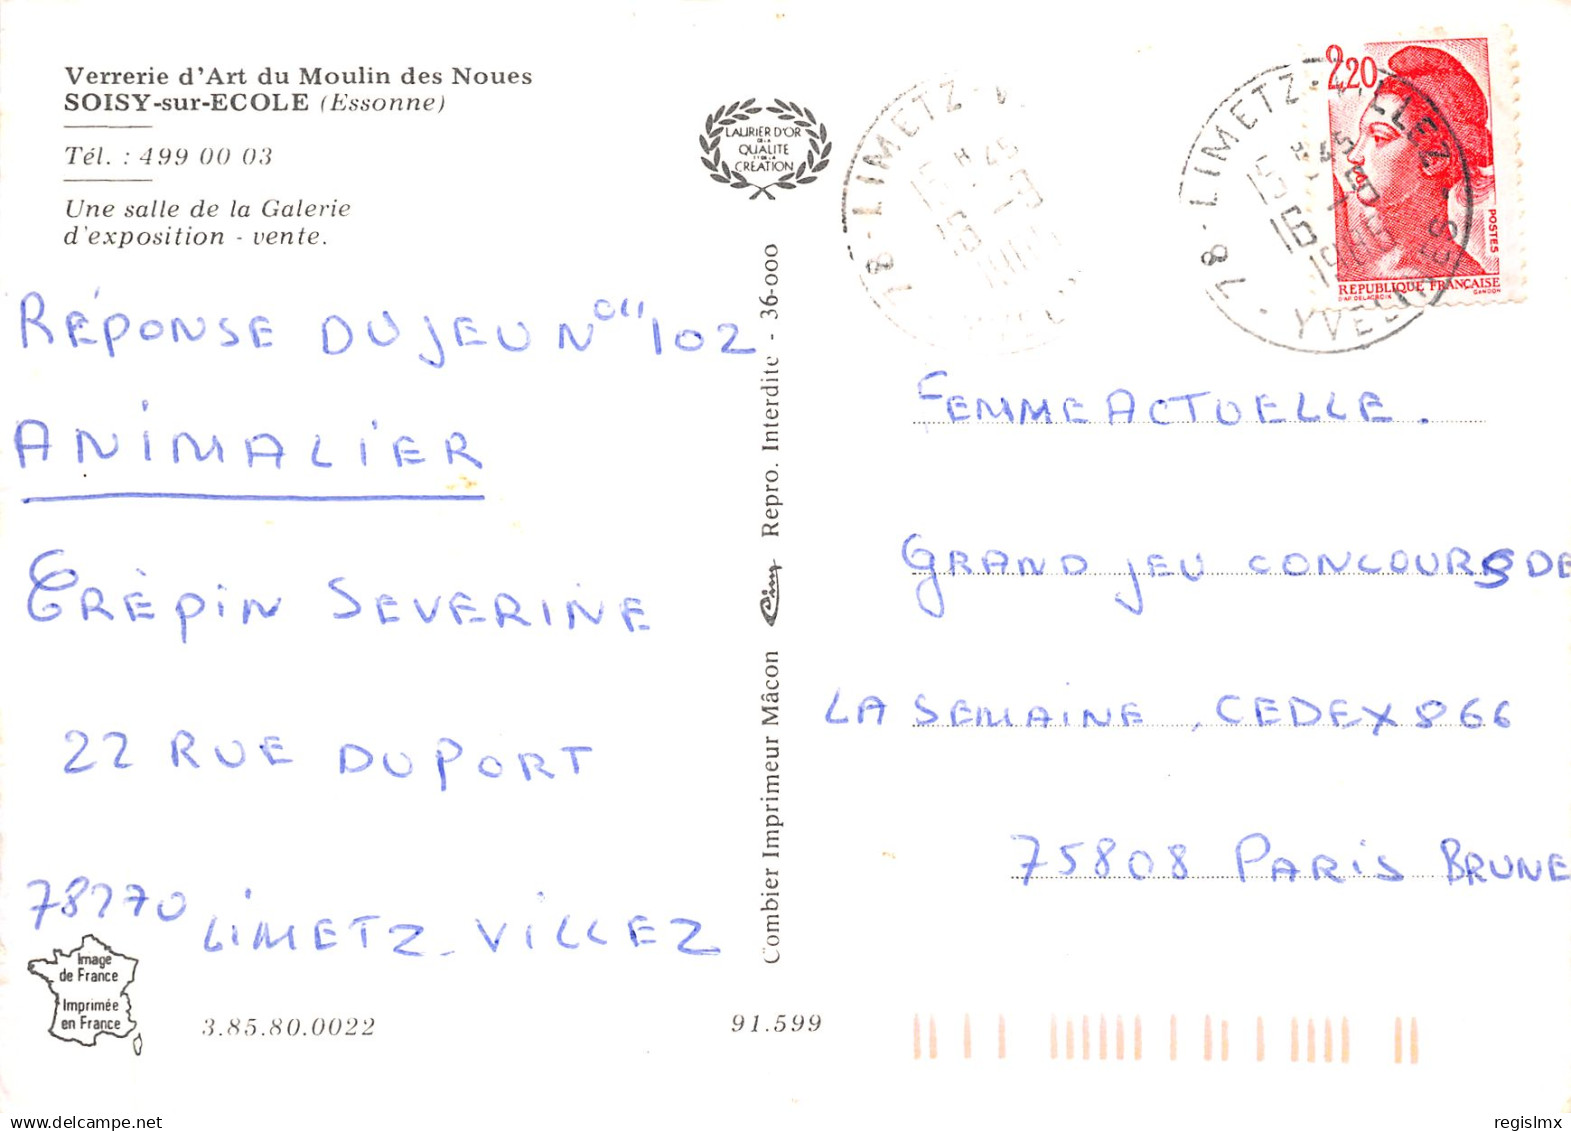 Verrerie d'Art du Moulin des Noues
SOISY-sur-ECOLE (Essonne)
Tél. : 499 00 03
Une salle de la Galerie
d'exposition - vente.
LAURIER D'OR
DE LA
QUALITE
ET DE LA
CREATION
78 - LIMETZ
78 - LIMETZ-VILLEZ
YVELINES
2,20
POSTES
REPUBLIQUE FRANÇAISE
D'AP. DELACROIX GANDON
RÉPONSE DU JEU N° 102
ANIMALIER
CRÈPIN SEVERINE
22 RUE DU PORT
78270 LIMETZ-VILLEZ
Combier Imprimeur Mâcon Cim Repro. Interdite - 36-000
FEMME ACTUELLE.
GRAND JEU CONCOURS DE
LA SEMAINE, CEDEX 866
75808 PARIS BRUNE
Image
de France
Imprimée
en France
3.85.80.0022
91.599
Delcampe.net
regislmx